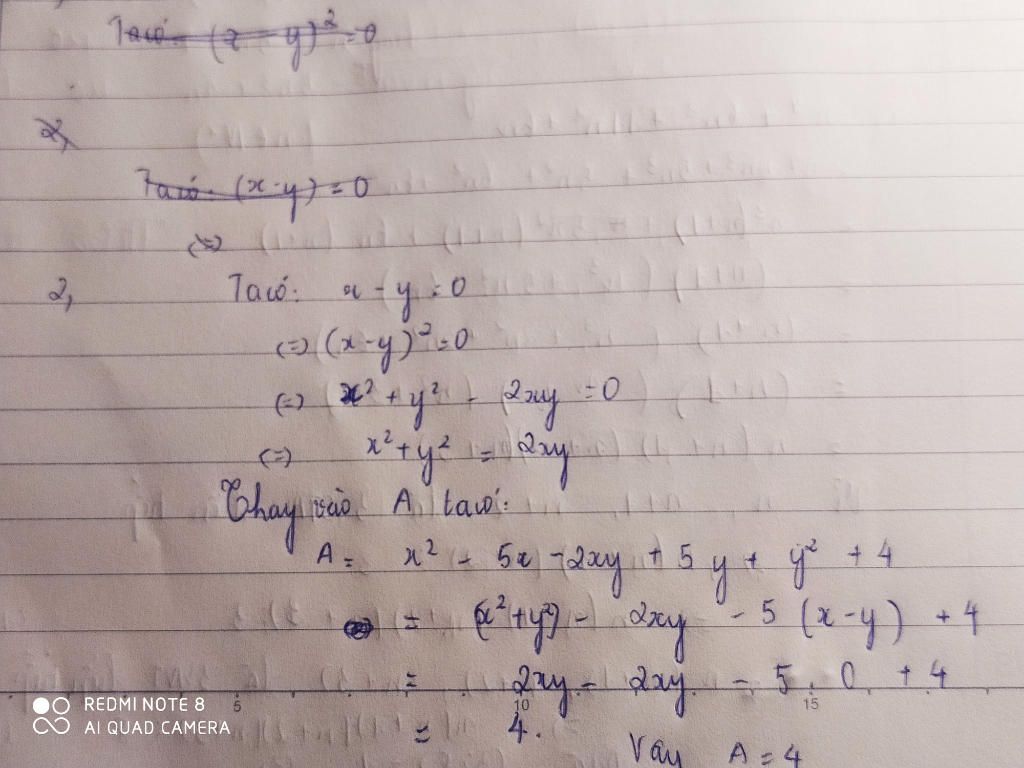 Ta có: (x - y)² = 0
2,
Ta có: (x - y) = 0
(=)
2, Ta có: x - y = 0
(=) (x - y)² = 0
(=) x² + y² - 2xy = 0
(=) x² + y² = 2xy
Thay vào A, ta có:
A = x² - 5x - 2xy + 5y + y² + 4
= (x² + y²) - 2xy - 5 (x - y) + 4
= 2xy - 2xy - 5 . 0 + 4
= 4.
Vậy A = 4
5 10 15
REDMI NOTE 8
AI QUAD CAMERA